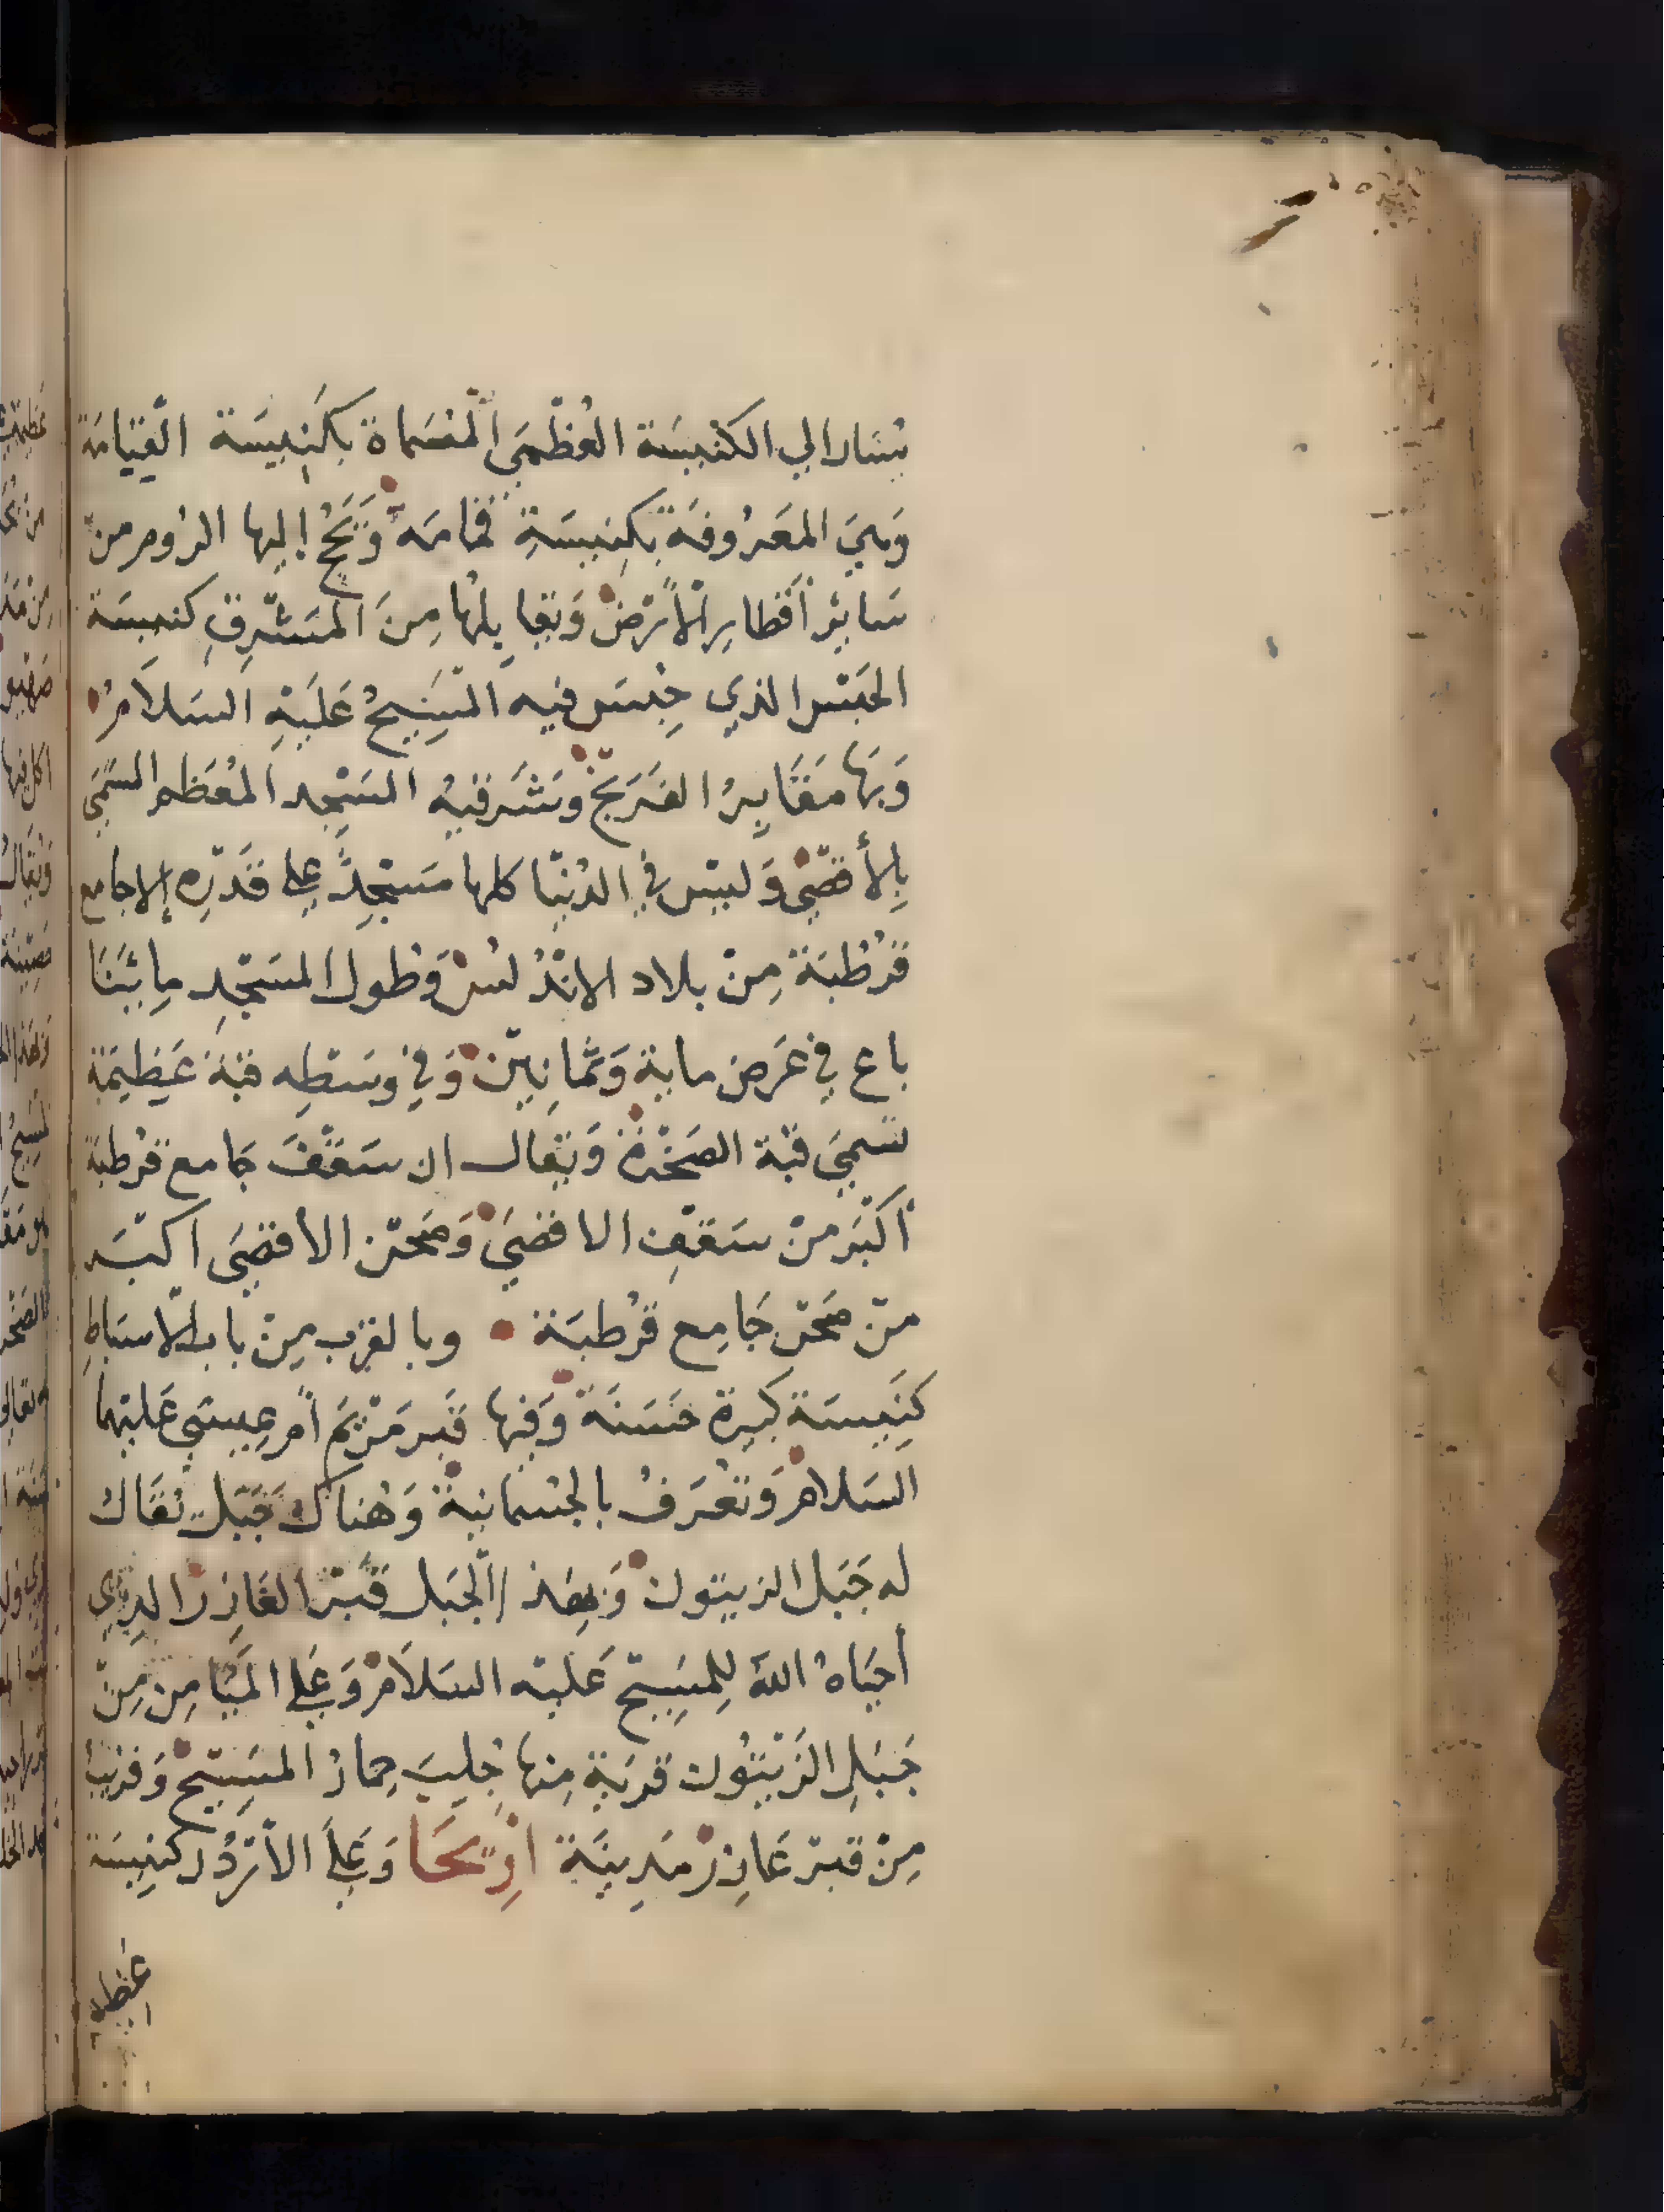 يُسَار الي الكنيسَة العُظمَي المُسَماة بكَنِيسَة القِيَامَة
وَهيَ المعَرُوفَة بكِنيسَةِ قمامَه وَيَحُجُّ إليها الرُوم من
سَايرْ أقطارِ الأرْضْ وَيقابِلهُا مِنَ المَشْرِقِ كنيسَة
الحَبْس الذي حِبسَ فيه المَسِيحُ عَليَهِ السَلاَمُ
وَبهَا مَقَابِرُ الفرَنج وَشَرقيهُ المسَجْد المُعَظم المسَمَي
بِالأقصَي وَليسْ في الدُنيَا كلها مَسْجِدٌ علي قَدْرِه إلا جامع
قُرْطُبَة مِنْ بلاد الانْدُلسْ وَطول المسَجْدِ مِائتَا
باع في عَرض ماية وَثمَانِينْ وَفي وسَطِه قبَة عَظِيمَة
تسمَيَ قبْة الصَخْرة وَيقال ان سَقْفَ جَامع قُرْطبَة
أكبَر منْ سَقفِ الاقصَيَ وَصَحْن الأقصَي اكبَر
منْ صَحْن جَامِع قُرْطبَة وبالقرب مِنْ باب الاسبَاطِ
كَنِيسَة كبَيرة حَسَنَة وَفيها قبَر مَرْيَم أمِ عِيسَي عَليهْما
السَلامْ وَتعُرَفُ بالجُسمانيةْ وَهُناك جَبَل يُقَال
له جَبَل الزيتون وَبهَذا الجَبل قبْر العَازِر الذِي
أحيَاهُ اللهُ لِلمِسَيح عَليْه السَلاَمْ وَعَلي المَيَامِنِ مِنْ
جَبَلِ الزَيْتُون قريَة مِنها جُلِبَ حِمارُ المَسِيْحْ وَقريبًا
مِنْ قبْر عَازِرْ مَدِينَة ارِيحَا وَعَلَي الأرْدُن كنِيسَة
عظيمة